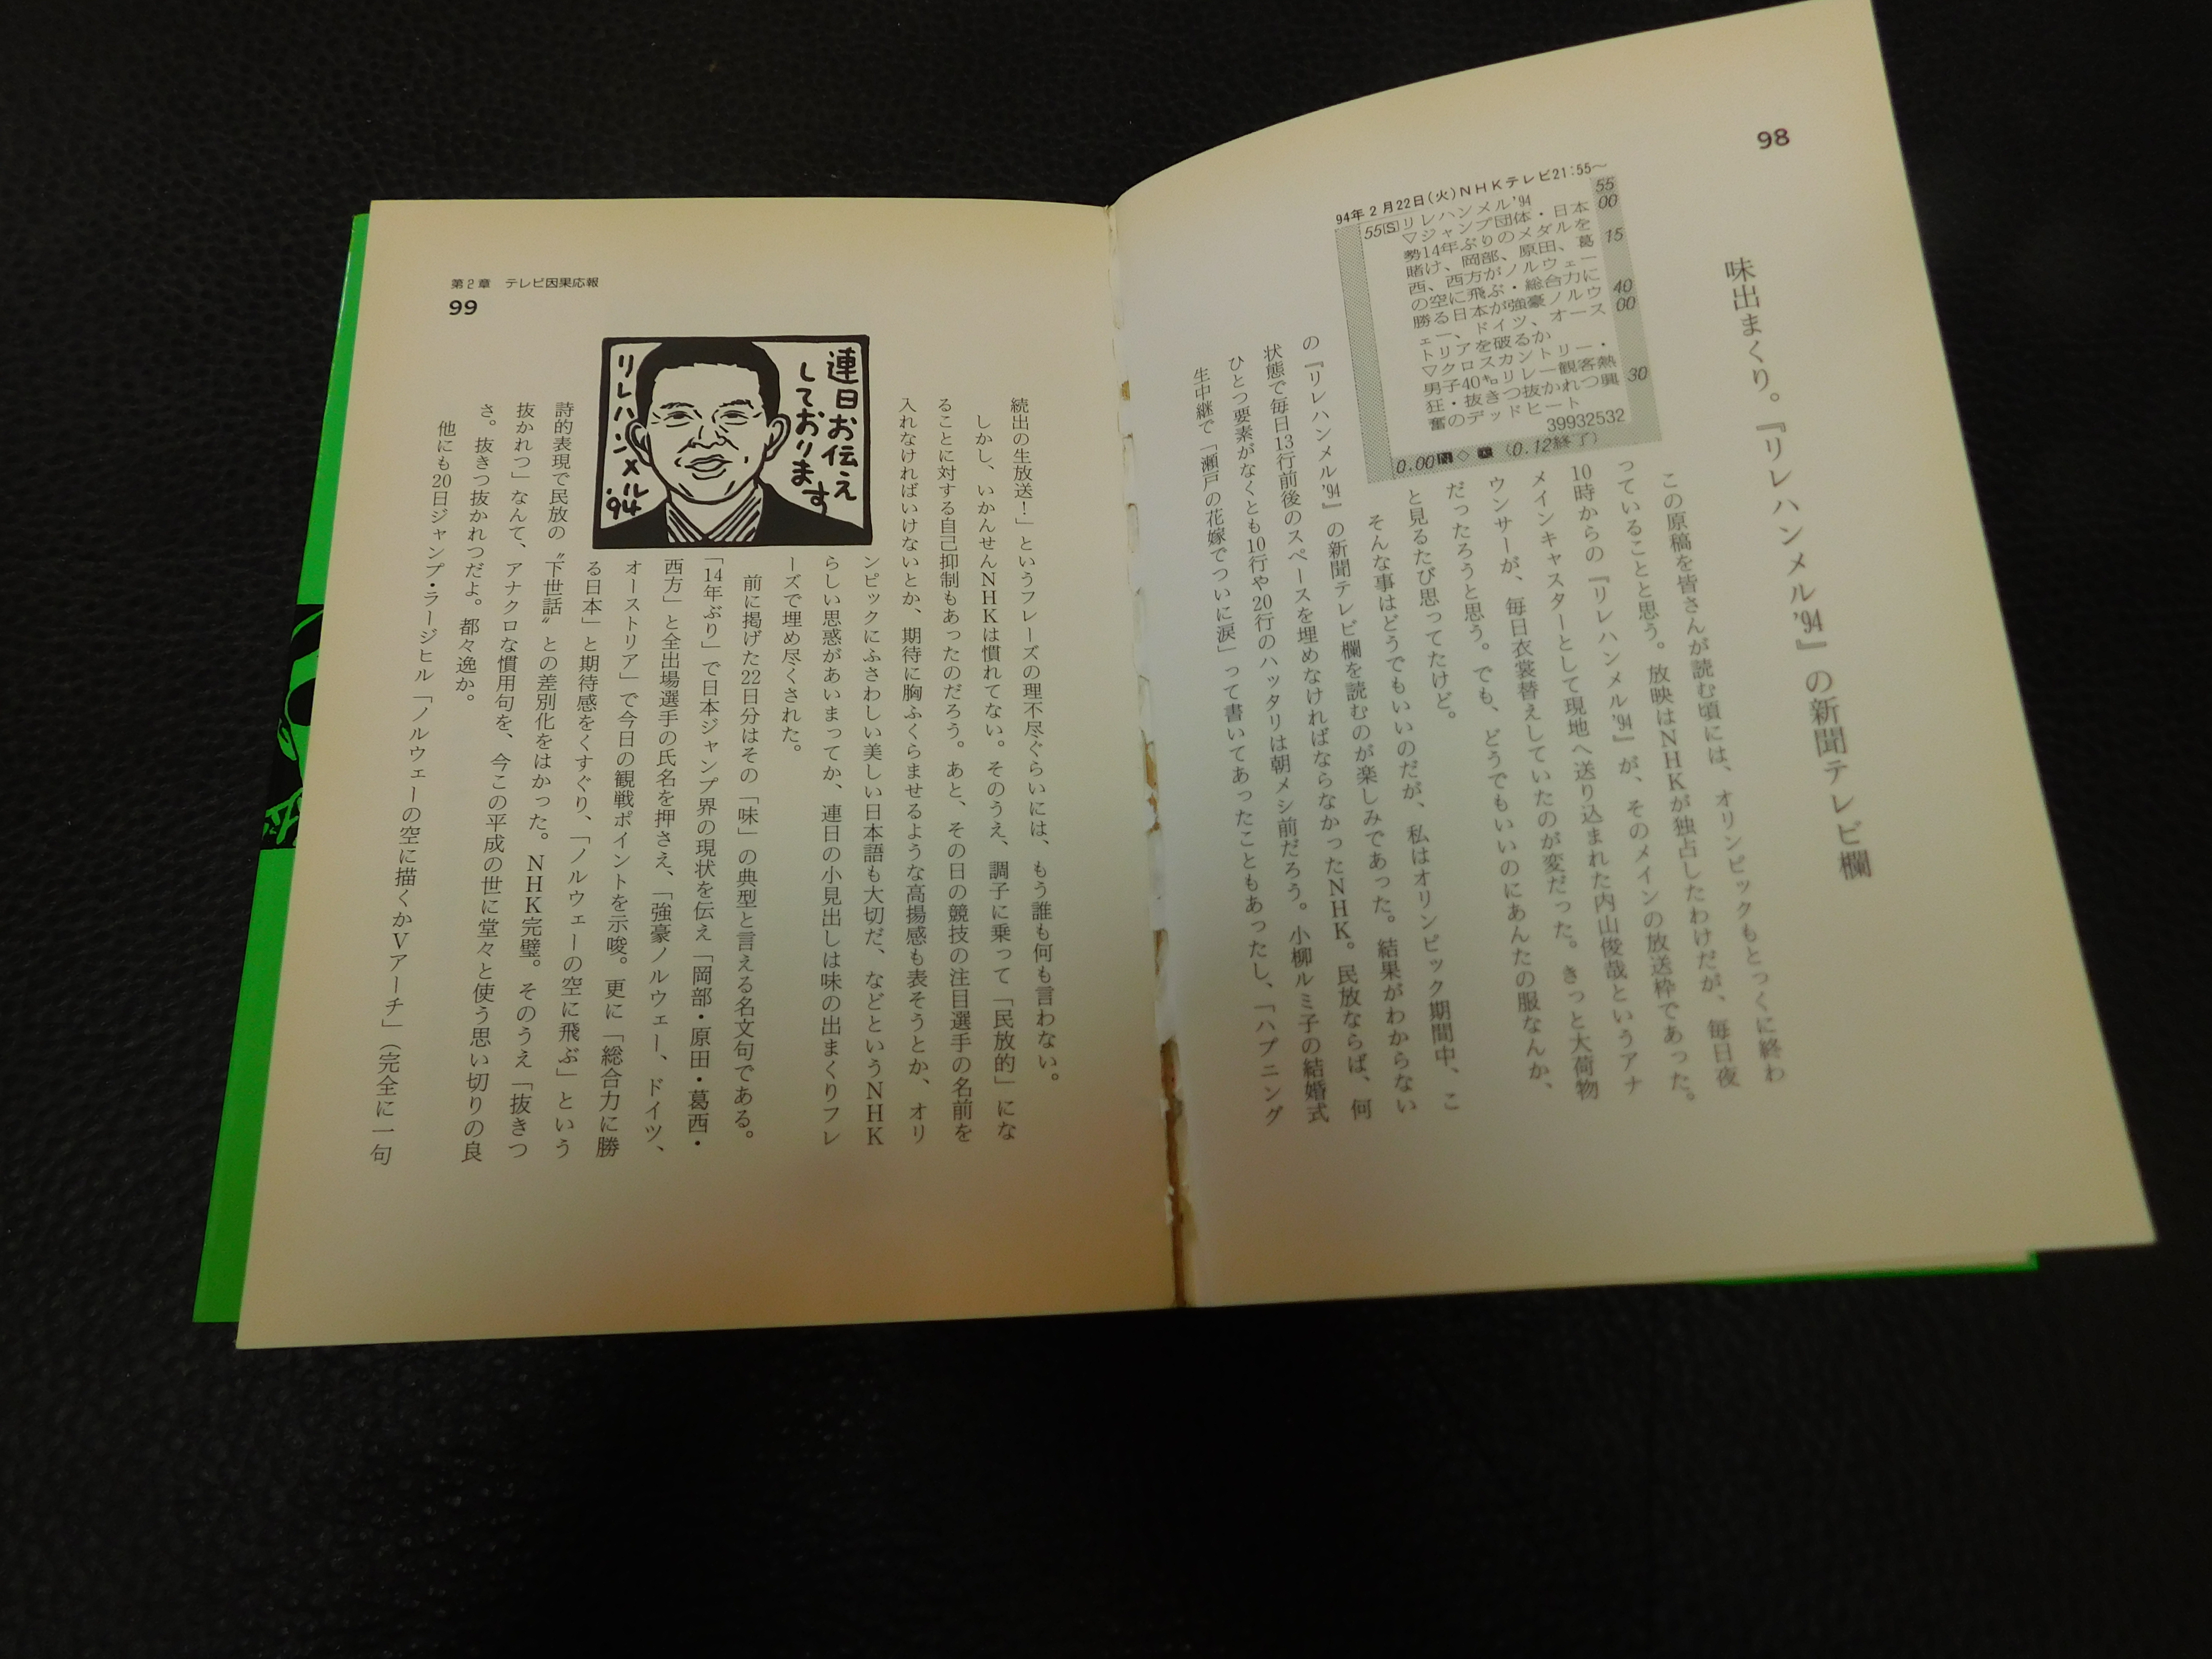 98
味出まくり。『リレハンメル'94』の新聞テレビ欄
94年2月22日(火)NHKテレビ21:55〜
55Sリレハンメル'94
▽ジャンプ団体・日本
勢14年ぶりのメダルを
賭け、岡部、原田、葛
西、西方がノルウェー
の空に飛ぶ・総合力に
勝る日本が強豪ノルウ
ェー、ドイツ、オース
トリアを破るか
▽クロスカントリー・
男子40㌔リレー観客熱
狂・抜きつ抜かれつ興
奮のデッドヒート
39932532
0.00 ◇ (0.12終了)
55
00
15
40
00
30
この原稿を皆さんが読む頃には、オリンピックもとっくに終わ
っていることと思う。放映はNHKが独占したわけだが、毎日夜
10時からの『リレハンメル'94』が、そのメインの放送枠であった。
メインキャスターとして現地へ送り込まれた内山俊哉というアナ
ウンサーが、毎日衣裳替えしていたのが変だった。きっと大荷物
だったろうと思う。でも、どうでもいいのにあんたの服なんか、
と見るたび思ってたけど。
そんな事はどうでもいいのだが、私はオリンピック期間中、こ
の『リレハンメル'94』の新聞テレビ欄を読むのが楽しみであった。結果がわからない
状態で毎日13行前後のスペースを埋めなければならなかったNHK。民放ならば、何
ひとつ要素がなくとも10行や20行のハッタリは朝メシ前だろう。小柳ルミ子の結婚式
生中継で「瀬戸の花嫁でついに涙」って書いてあったこともあったし、「ハプニング
第2章 テレビ因果応報
99
続出の生放送!」というフレーズの理不尽ぐらいには、もう誰も何も言わない。
しかし、いかんせんNHKは慣れてない。そのうえ、調子に乗って「民放的」にな
ることに対する自己抑制もあったのだろう。あと、その日の競技の注目選手の名前を
入れなければいけないとか、期待に胸ふくらませるような高揚感も表そうとか、オリ
ンピックにふさわしい美しい日本語も大切だ、などというNHK
らしい思惑があいまってか、連日の小見出しは味の出まくりフレ
ーズで埋め尽くされた。
前に掲げた22日分はその「味」の典型と言える名文句である。
「14年ぶり」で日本ジャンプ界の現状を伝え「岡部・原田・葛西・
西方」と全出場選手の氏名を押さえ、「強豪ノルウェー、ドイツ、
オーストリア」で今日の観戦ポイントを示唆。更に「総合力に勝
る日本」と期待感をくすぐり、「ノルウェーの空に飛ぶ」という
詩的表現で民放の〝下世話〟との差別化をはかった。NHK完璧。そのうえ「抜きつ
抜かれつ」なんて、アナクロな慣用句を、今この平成の世に堂々と使う思い切りの良
さ。抜きつ抜かれつだよ。都々逸か。
他にも20日ジャンプ・ラージヒル「ノルウェーの空に描くかVアーチ」(完全に一句
連日お伝え
しております
リレハンメル
'94